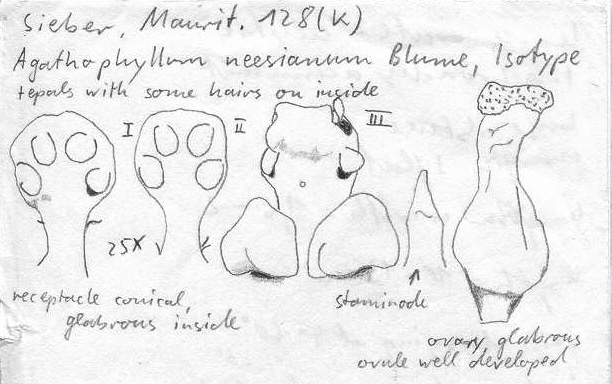 Sieber, Maurit. 128(K)
Agathophyllum neesianum Blume, Isotype
tepals with some hairs on inside
I II III
25x
receptacle conical,
glabrous inside
staminode
ovary glabrous
ovule well developed